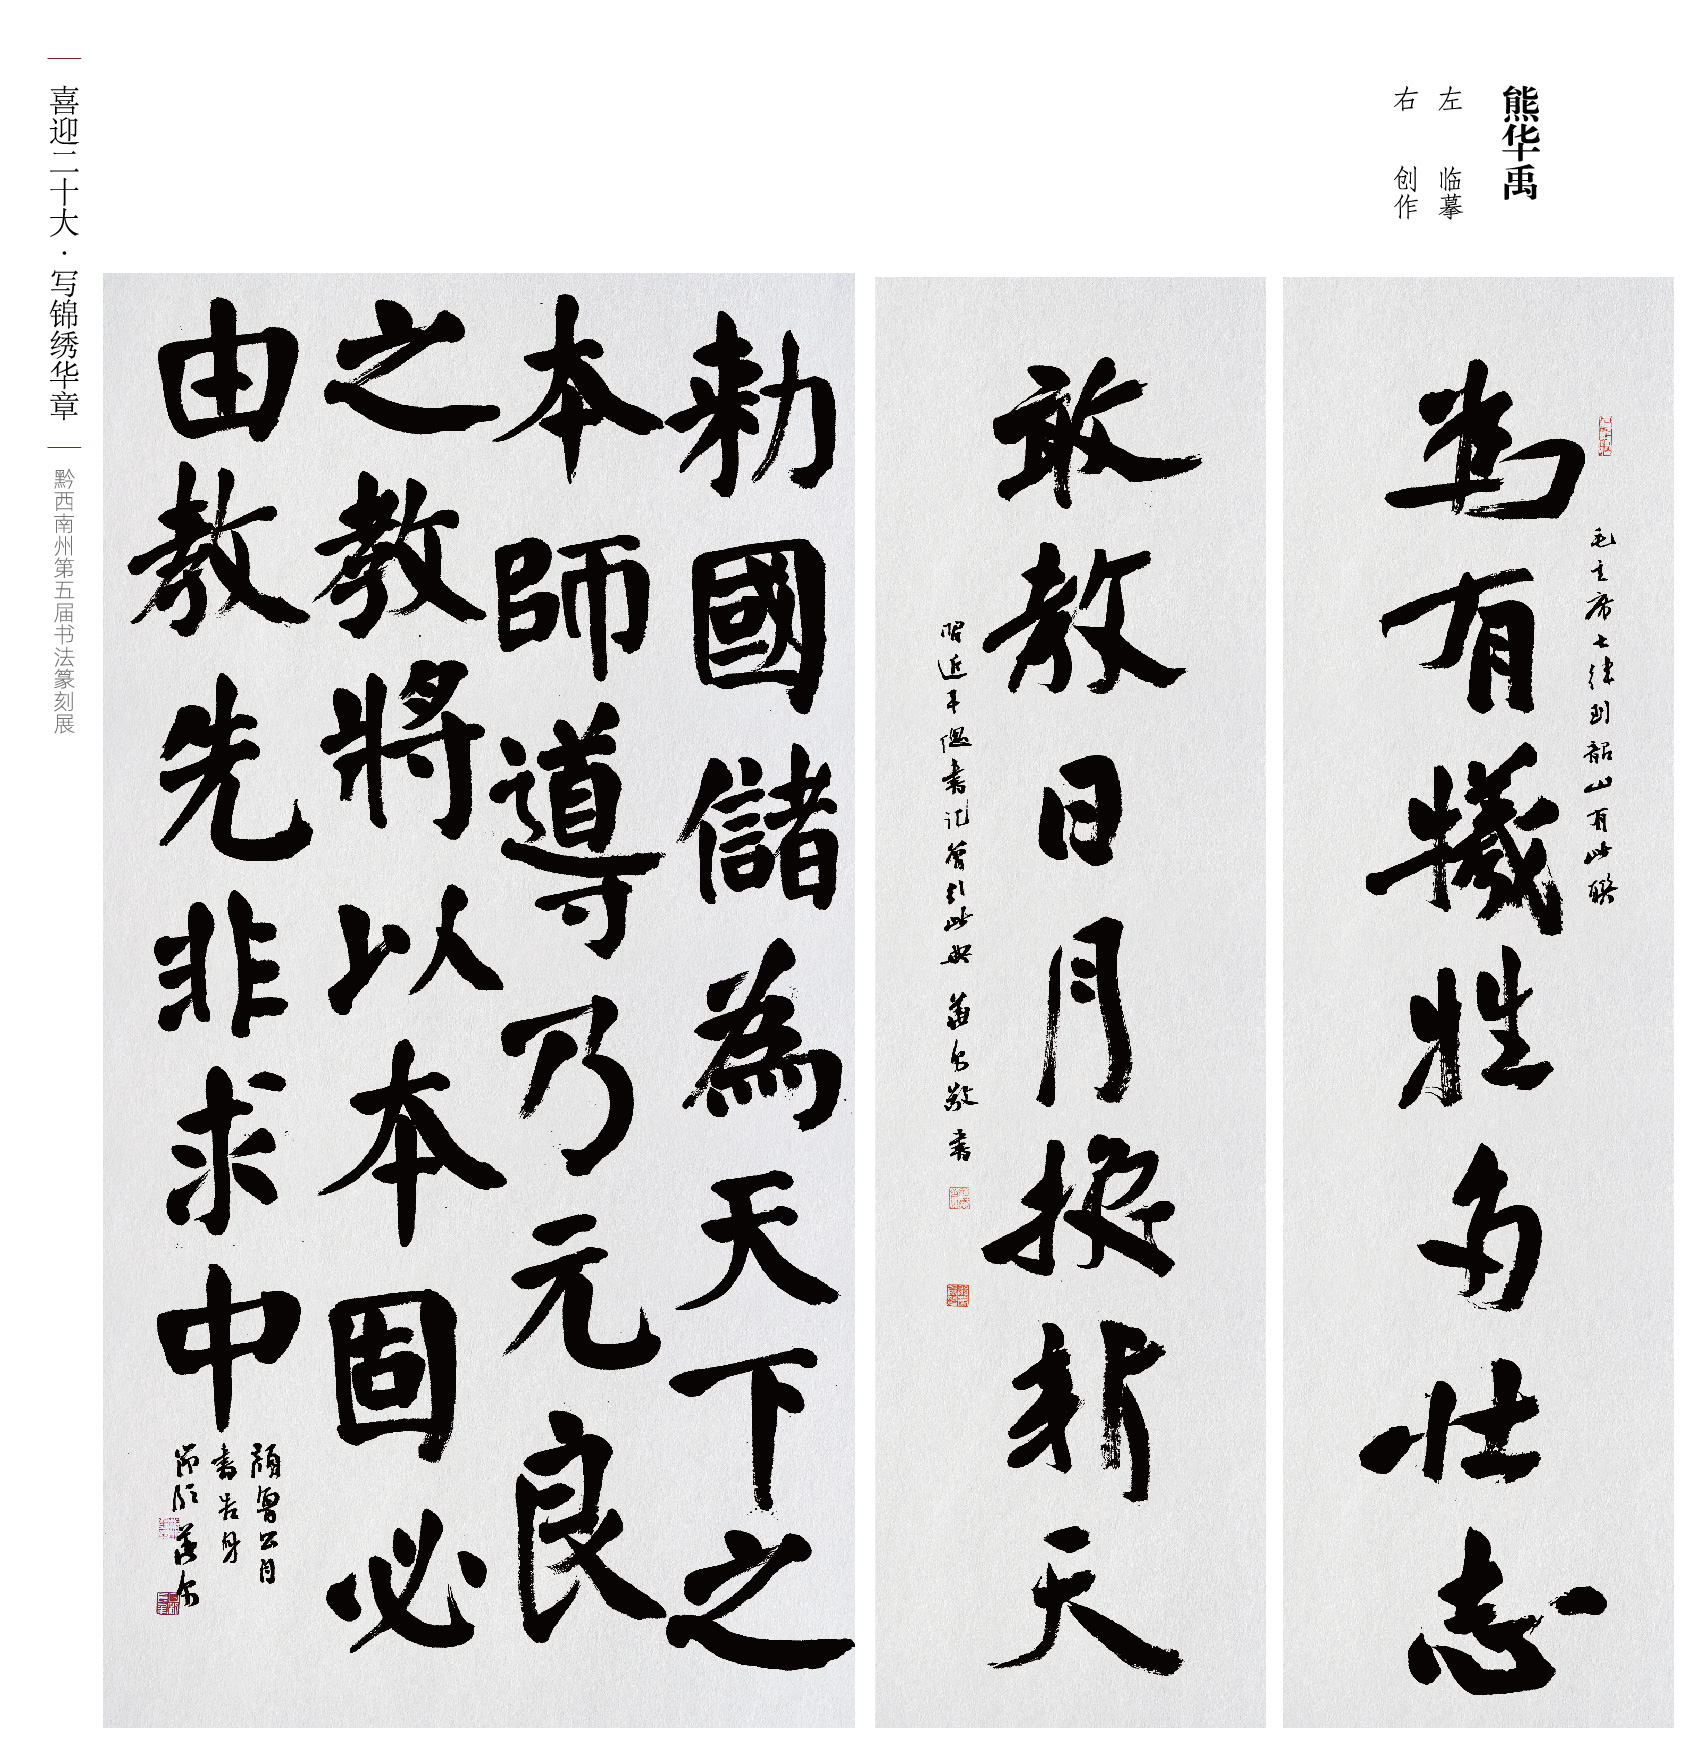 熊华禹
左 临摹
右 创作
为有犠牲多壮志
毛主席七律到韶山有此联
敢教日月换新天
习近平总书记曾引此典
敬书
勅國儲為天下之
本師導乃元良
之教將以本固必
由教先非求中
顔魯公自
書告身
節臨
喜迎二十大·写锦绣华章
黔西南州第五届书法篆刻展